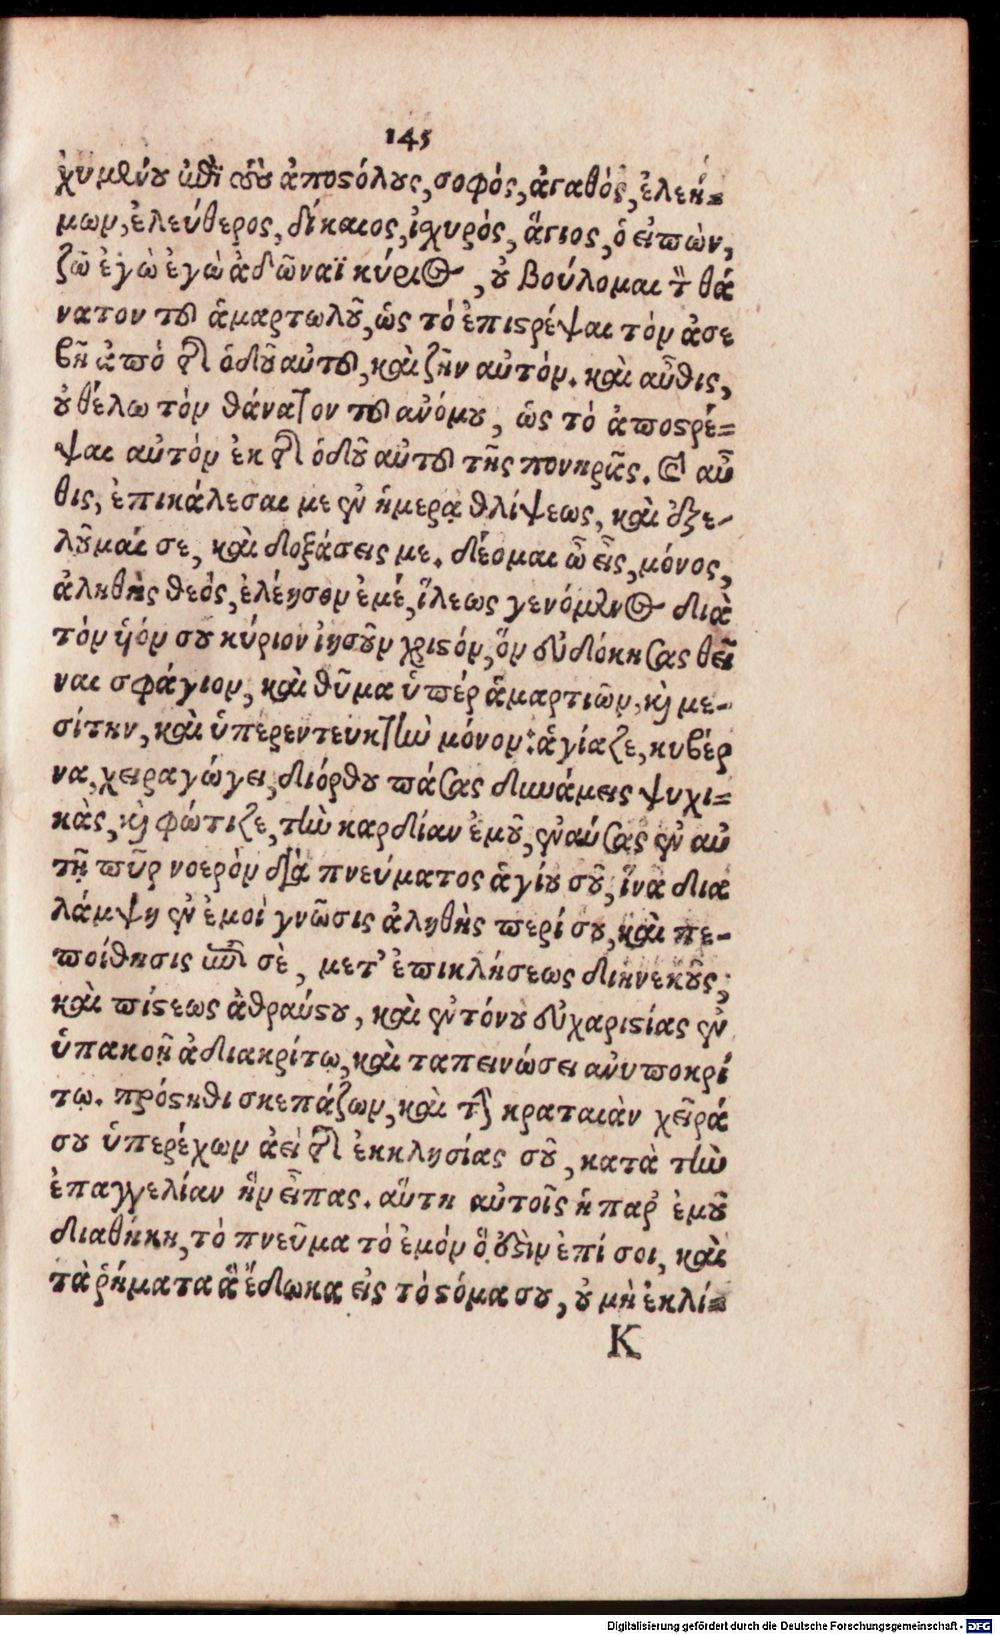 145
χυμένου ἐπὶ τοὺς ἀποστόλους, σοφὸς, ἀγαθὸς, ἐλεή-
μων, ἐλεύθερος, δίκαιος, ἰσχυρὸς, ἅγιος, ὁ εἰπὼν,
ζῶ ἐγὼ ἐγὼ ἀδωναῒ κύριος, οὐ βούλομαι τὸν θά
νατον τοῦ ἁμαρτωλοῦ, ὡς τὸ ἐπιστρέψαι τὸν ἀσε
βῆ ἀπὸ τῆς ὁδοῦ αὐτοῦ, καὶ ζῆν αὐτόν. καὶ αὖθις,
οὐ θέλω τὸν θάνατον τοῦ ἀνόμου, ὡς τὸ ἀποστρέ-
ψαι αὐτὸν ἐκ τῆς ὁδοῦ αὐτοῦ τῆς πονηρᾶς. καὶ αὖ
θις, ἐπικάλεσαι με ἐν ἡμέρᾳ θλίψεως, καὶ ἐξε-
λοῦμαί σε, καὶ δοξάσεις με. δέομαι ὦ εἷς, μόνος,
ἀληθὴς θεὸς, ἐλέησον ἐμέ, ἵλεως γενόμενος διὰ
τὸν υἱόν σου κύριον ἰησοῦν χριστόν, ὃν εὐδόκησας θεῖ
ναι σφάγιον, καὶ θῦμα ὑπὲρ ἁμαρτιῶν, καὶ με-
σίτην, καὶ ὑπερεντευκτὴν μόνον: ἁγίαζε, κυβέρ
να, χειραγώγει, διόρθου πάσας δυνάμεις ψυχι-
κὰς, καὶ φώτιζε, τὴν καρδίαν ἐμοῦ, ἐναύσας ἐν αὐ
τῇ πῦρ νοερὸν διὰ πνεύματος ἁγίου σοῦ, ἵνα δια
λάμψῃ ἐν ἐμοὶ γνῶσις ἀληθὴς περί σου, καὶ πε-
ποίθησις ἐπὶ σὲ, μετ' ἐπικλήσεως διηνεκοῦς,
καὶ πίστεως ἀθραύστου, καὶ ἐντόνου εὐχαριστίας ἐν
ὑπακοῇ ἀδιακρίτῳ, καὶ ταπεινώσει ἀνυποκρί
τῳ. πρόστηθι σκεπάζων, καὶ τὴν κραταιὰν χεῖρά
σου ὑπερέχων ἀεὶ τῆς ἐκκλησίας σοῦ, κατὰ τὴν
ἐπαγγελίαν ἣν εἶπας. αὕτη αὐτοῖς ἡ παρ' ἐμοῦ
διαθήκη, τὸ πνεῦμα τὸ ἐμὸν ὅ ἐστιν ἐπί σοι, καὶ
τὰ ῥήματα ἃ ἔδωκα εἰς τὸ στόμα σου, οὐ μὴ ἐκλί-
K
Digitalisierung gefördert durch die Deutsche Forschungsgemeinschaft - DFG